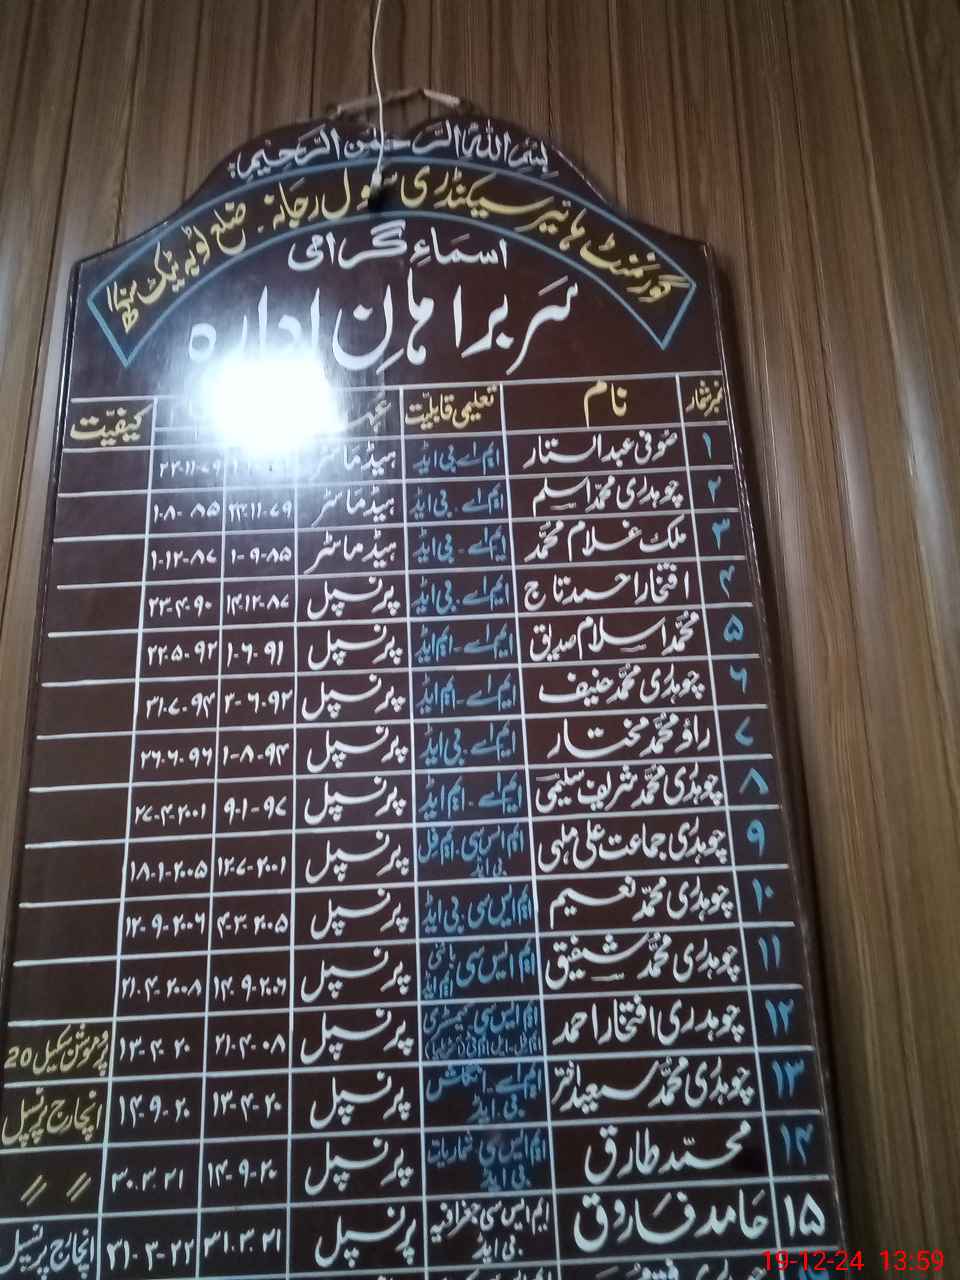 بِسْمِ اللّٰہِ الرَّحْمٰنِ الرَّحِیْمِ
گورنمنٹ ہائیر سیکنڈری سکول رجانہ ۔ ضلع ٹوبہ ٹیک سنگھ
اسماءِ گرامی
سربراہانِ ادارہ
نمبر شمار نام تعلیمی قابلیّت کیفیّت
۱ صُوفی عبدالستار ایم اے بی ایڈ ہیڈ ماسٹر ۲۲-۱۱-۷۹
۲ چوہدری محمّد اسلم ایم اے ۔ بی ایڈ ہیڈ ماسٹر ۲۳-۱۱-۷۹ ۱-۸-۸۵
۳ ملک غلام محمّد ایم اے ۔ بی ایڈ ہیڈ ماسٹر ۱-۹-۸۵ ۱-۱۲-۸۷
۴ افتخار احمد تاج ایم اے ۔ بی ایڈ پرنسپل ۱۴-۱۲-۸۷ ۲۳-۴-۹۰
۵ محمّد اسلام صدیق ایم اے ۔ ایم ایڈ پرنسپل ۱-۶-۹۱ ۲۲-۵-۹۲
۶ چوہدری محمّد حنیف ایم اے ۔ ایم ایڈ پرنسپل ۲-۶-۹۲ ۳۱-۷-۹۴
۷ راؤ محمّد مختار ایم اے ۔ بی ایڈ پرنسپل ۱-۸-۹۴ ۲۶-۶-۹۶
۸ چوہدری محمّد شریف سلیمی ایم اے ۔ ایم ایڈ پرنسپل ۹-۱-۹۷ ۲۷-۴-۲۰۰۱
۹ چوہدری جماعت علی ملہی ایم ایس سی ۔ ایم فل بی ایڈ پرنسپل ۱۲-۷-۲۰۰۱ ۱۸-۱-۲۰۰۵
۱۰ چوہدری محمّد نعیم ایم ایس سی ۔ بی ایڈ پرنسپل ۴-۳-۲۰۰۵ ۱۲-۹-۲۰۰۶
۱۱ چوہدری محمّد شفیق ایم ایس سی باٹنی ایم ایڈ پرنسپل ۱۴-۹-۲۰۰۶ ۲۱-۴-۲۰۰۸
۱۲ چوہدری افتخار احمد ایم ایس سی کیمسٹری پرنسپل ۲۱-۴-۰۸ ۱۳-۴-۲۰ پروموشن سکیل 20
۱۳ چوہدری محمّد سعید اختر ایم اے ۔ انگلش بی ایڈ پرنسپل ۱۳-۴-۲۰ ۱۴-۹-۲۰ انچارج پرنسپل
۱۴ محمّد طارق ایم ایس سی شماریات بی ایڈ پرنسپل ۱۴-۹-۲۰ ۳۰-۳-۲۱ // //
۱۵ حامد فاروق ایم ایس سی جغرافیہ بی ایڈ پرنسپل ۳۱-۳-۲۱ ۳۱-۳-۲۲ انچارج پرنسپل
19-12-24 13:59